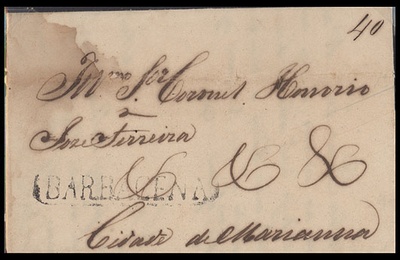 40
Illmo Snr Coronel Honorio
Joze Ferreira
& & &
BARBACENA
Cidade de Marianna